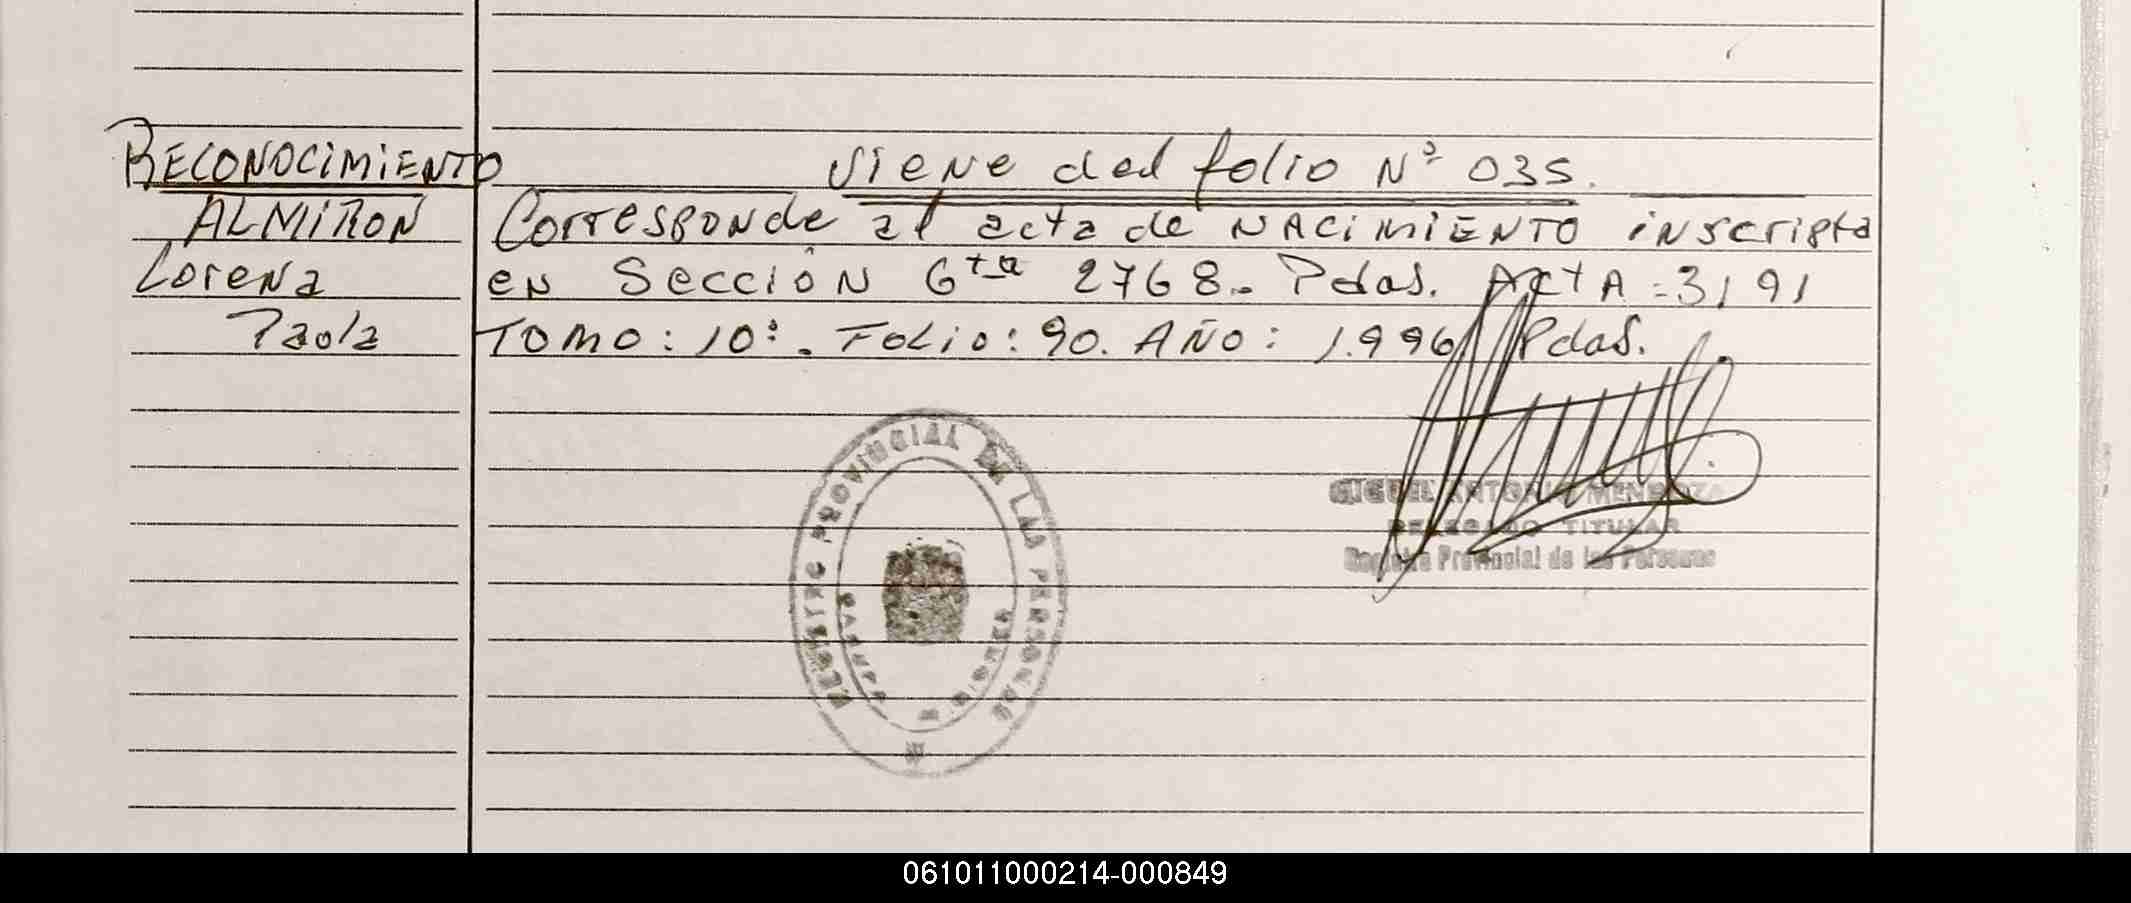 RECONOCIMIENTO
ALMIRON
Lorena
Paola
Viene del folio Nº 035.
Corresponde al acta de NACIMIENTO inscripta
en Sección 6ta 2768.- Pdas. ActA=3191
TOMO: 10º. Folio: 90. AÑO: 1.996 Pdas.
REGISTRO PROVINCIAL DE LAS PERSONAS
MIGUEL ANTONIO MENDOZA
DELEGADO TITULAR
Registro Provincial de las Personas
061011000214-000849